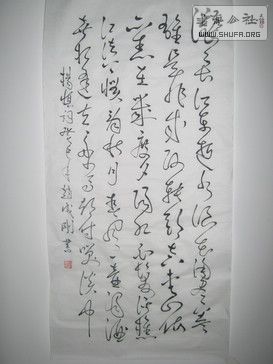 滚长江东逝水浪花淘尽英
雄是非成败转头空青山依
旧在几度夕阳红白发渔樵
江渚上惯看秋月春风一壶浊酒
喜相逢古今多少事都付笑谈中
杨慎词
书法公社
WWW.SHUFA.ORG